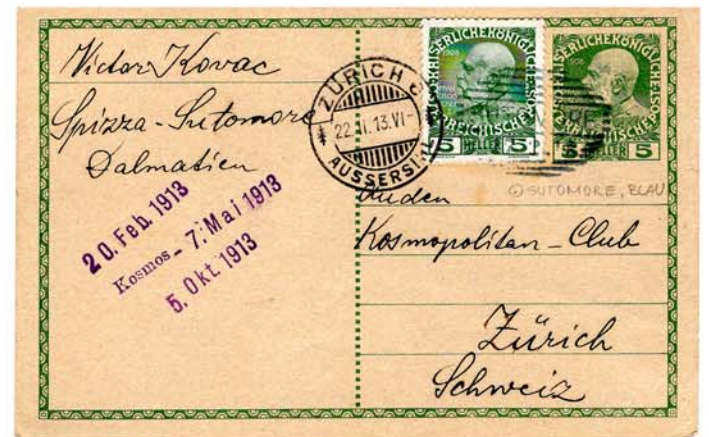 Victor Kovac
Spizza-Sutomore
Dalmatien
20. Feb. 1913
Kosmos - 7. Mai 1913
5. Okt. 1913
ZÜRICH
22.II.13.VI-
AUSSERSI
1908
5 HELLER 5
1908
5 HELLER 5
SUTOMORE, BLAU
An den
Kosmopolitan-Club
Zürich
Schweiz